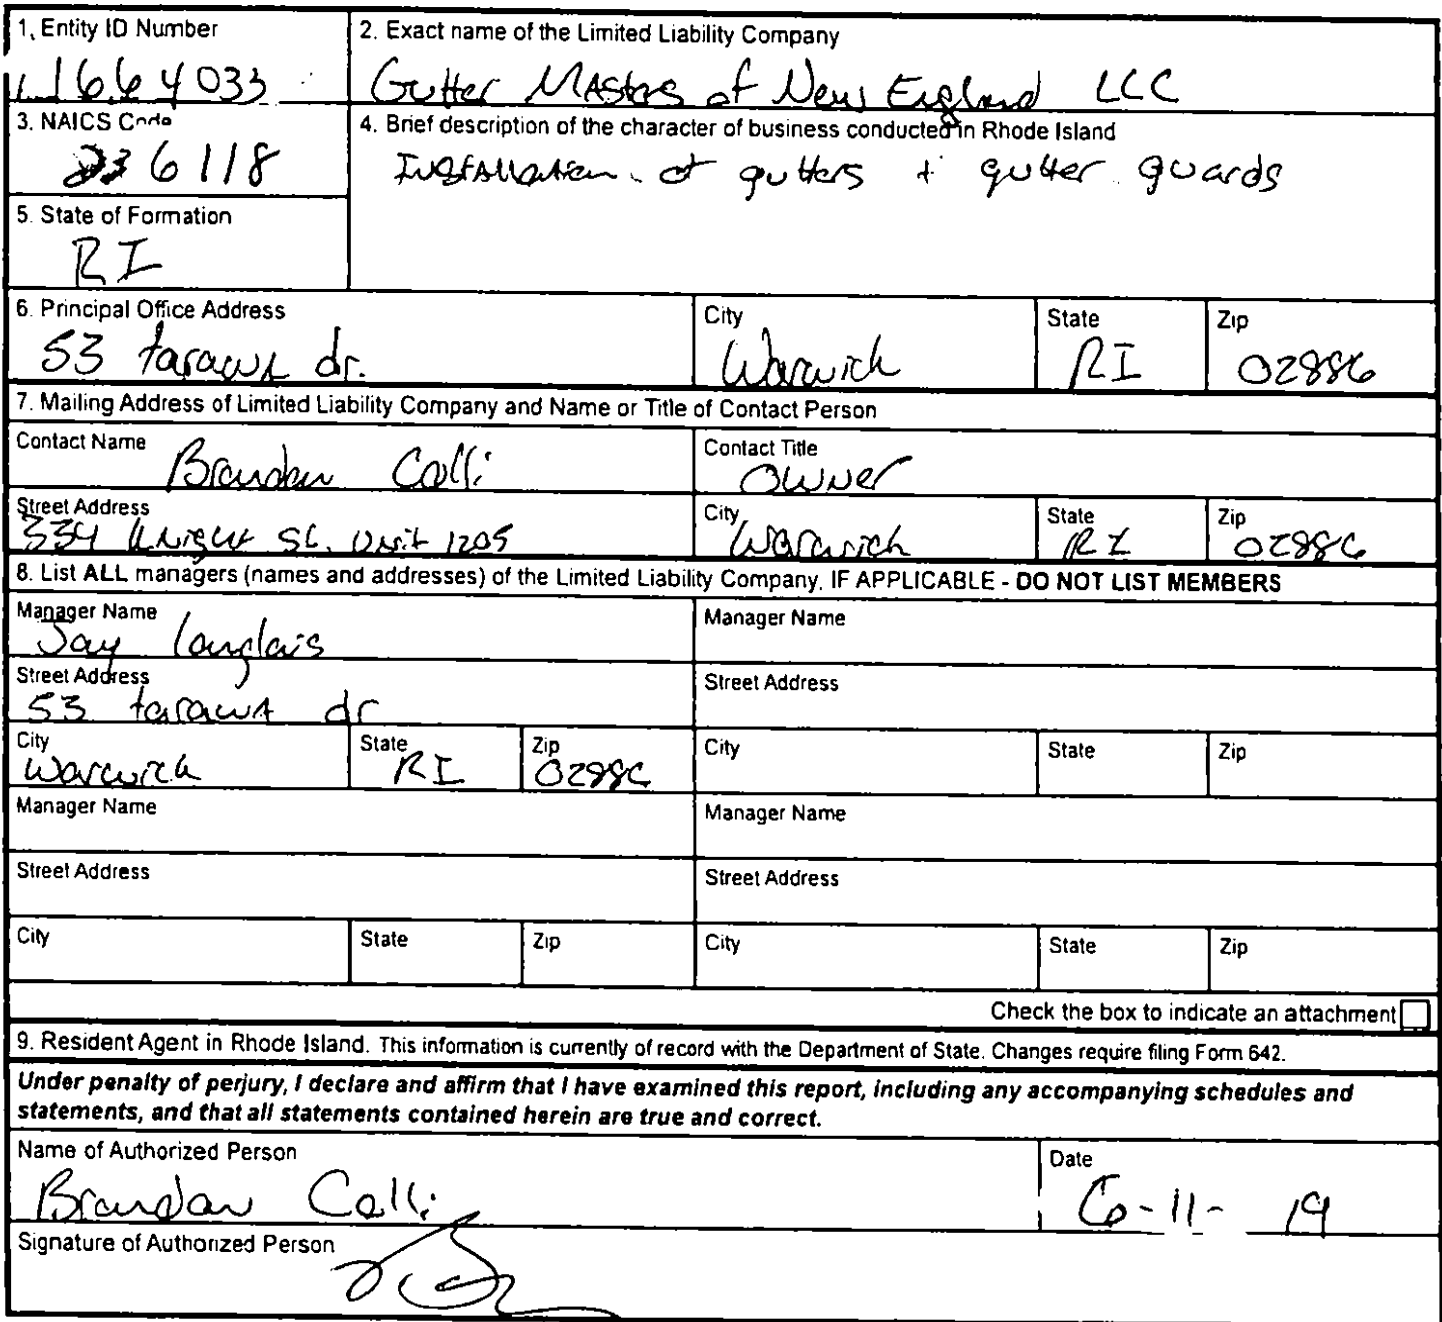 1. Entity ID Number
1664033
2. Exact name of the Limited Liability Company
Gutter Masters of New England LLC
3. NAICS Code
236118
4. Brief description of the character of business conducted in Rhode Island
Installation of gutters + gutter guards
5. State of Formation
RI
6. Principal Office Address
53 tarawa dr.
City
Warwick
State
RI
Zip
02886
7. Mailing Address of Limited Liability Company and Name or Title of Contact Person
Contact Name
Brandan Colli
Contact Title
Owner
Street Address
334 Knight St. Unit 1205
City
Warwick
State
RI
Zip
02886
8. List ALL managers (names and addresses) of the Limited Liability Company, IF APPLICABLE - DO NOT LIST MEMBERS
Manager Name
Jay Langlais
Manager Name
Street Address
53 tarawa dr
Street Address
City
Warwick
State
RI
Zip
02886
City
State
Zip
Manager Name
Manager Name
Street Address
Street Address
City
State
Zip
City
State
Zip
Check the box to indicate an attachment
9. Resident Agent in Rhode Island. This information is currently of record with the Department of State. Changes require filing Form 642.
Under penalty of perjury, I declare and affirm that I have examined this report, including any accompanying schedules and
statements, and that all statements contained herein are true and correct.
Name of Authorized Person
Brandan Colli
Date
6-11-19
Signature of Authorized Person